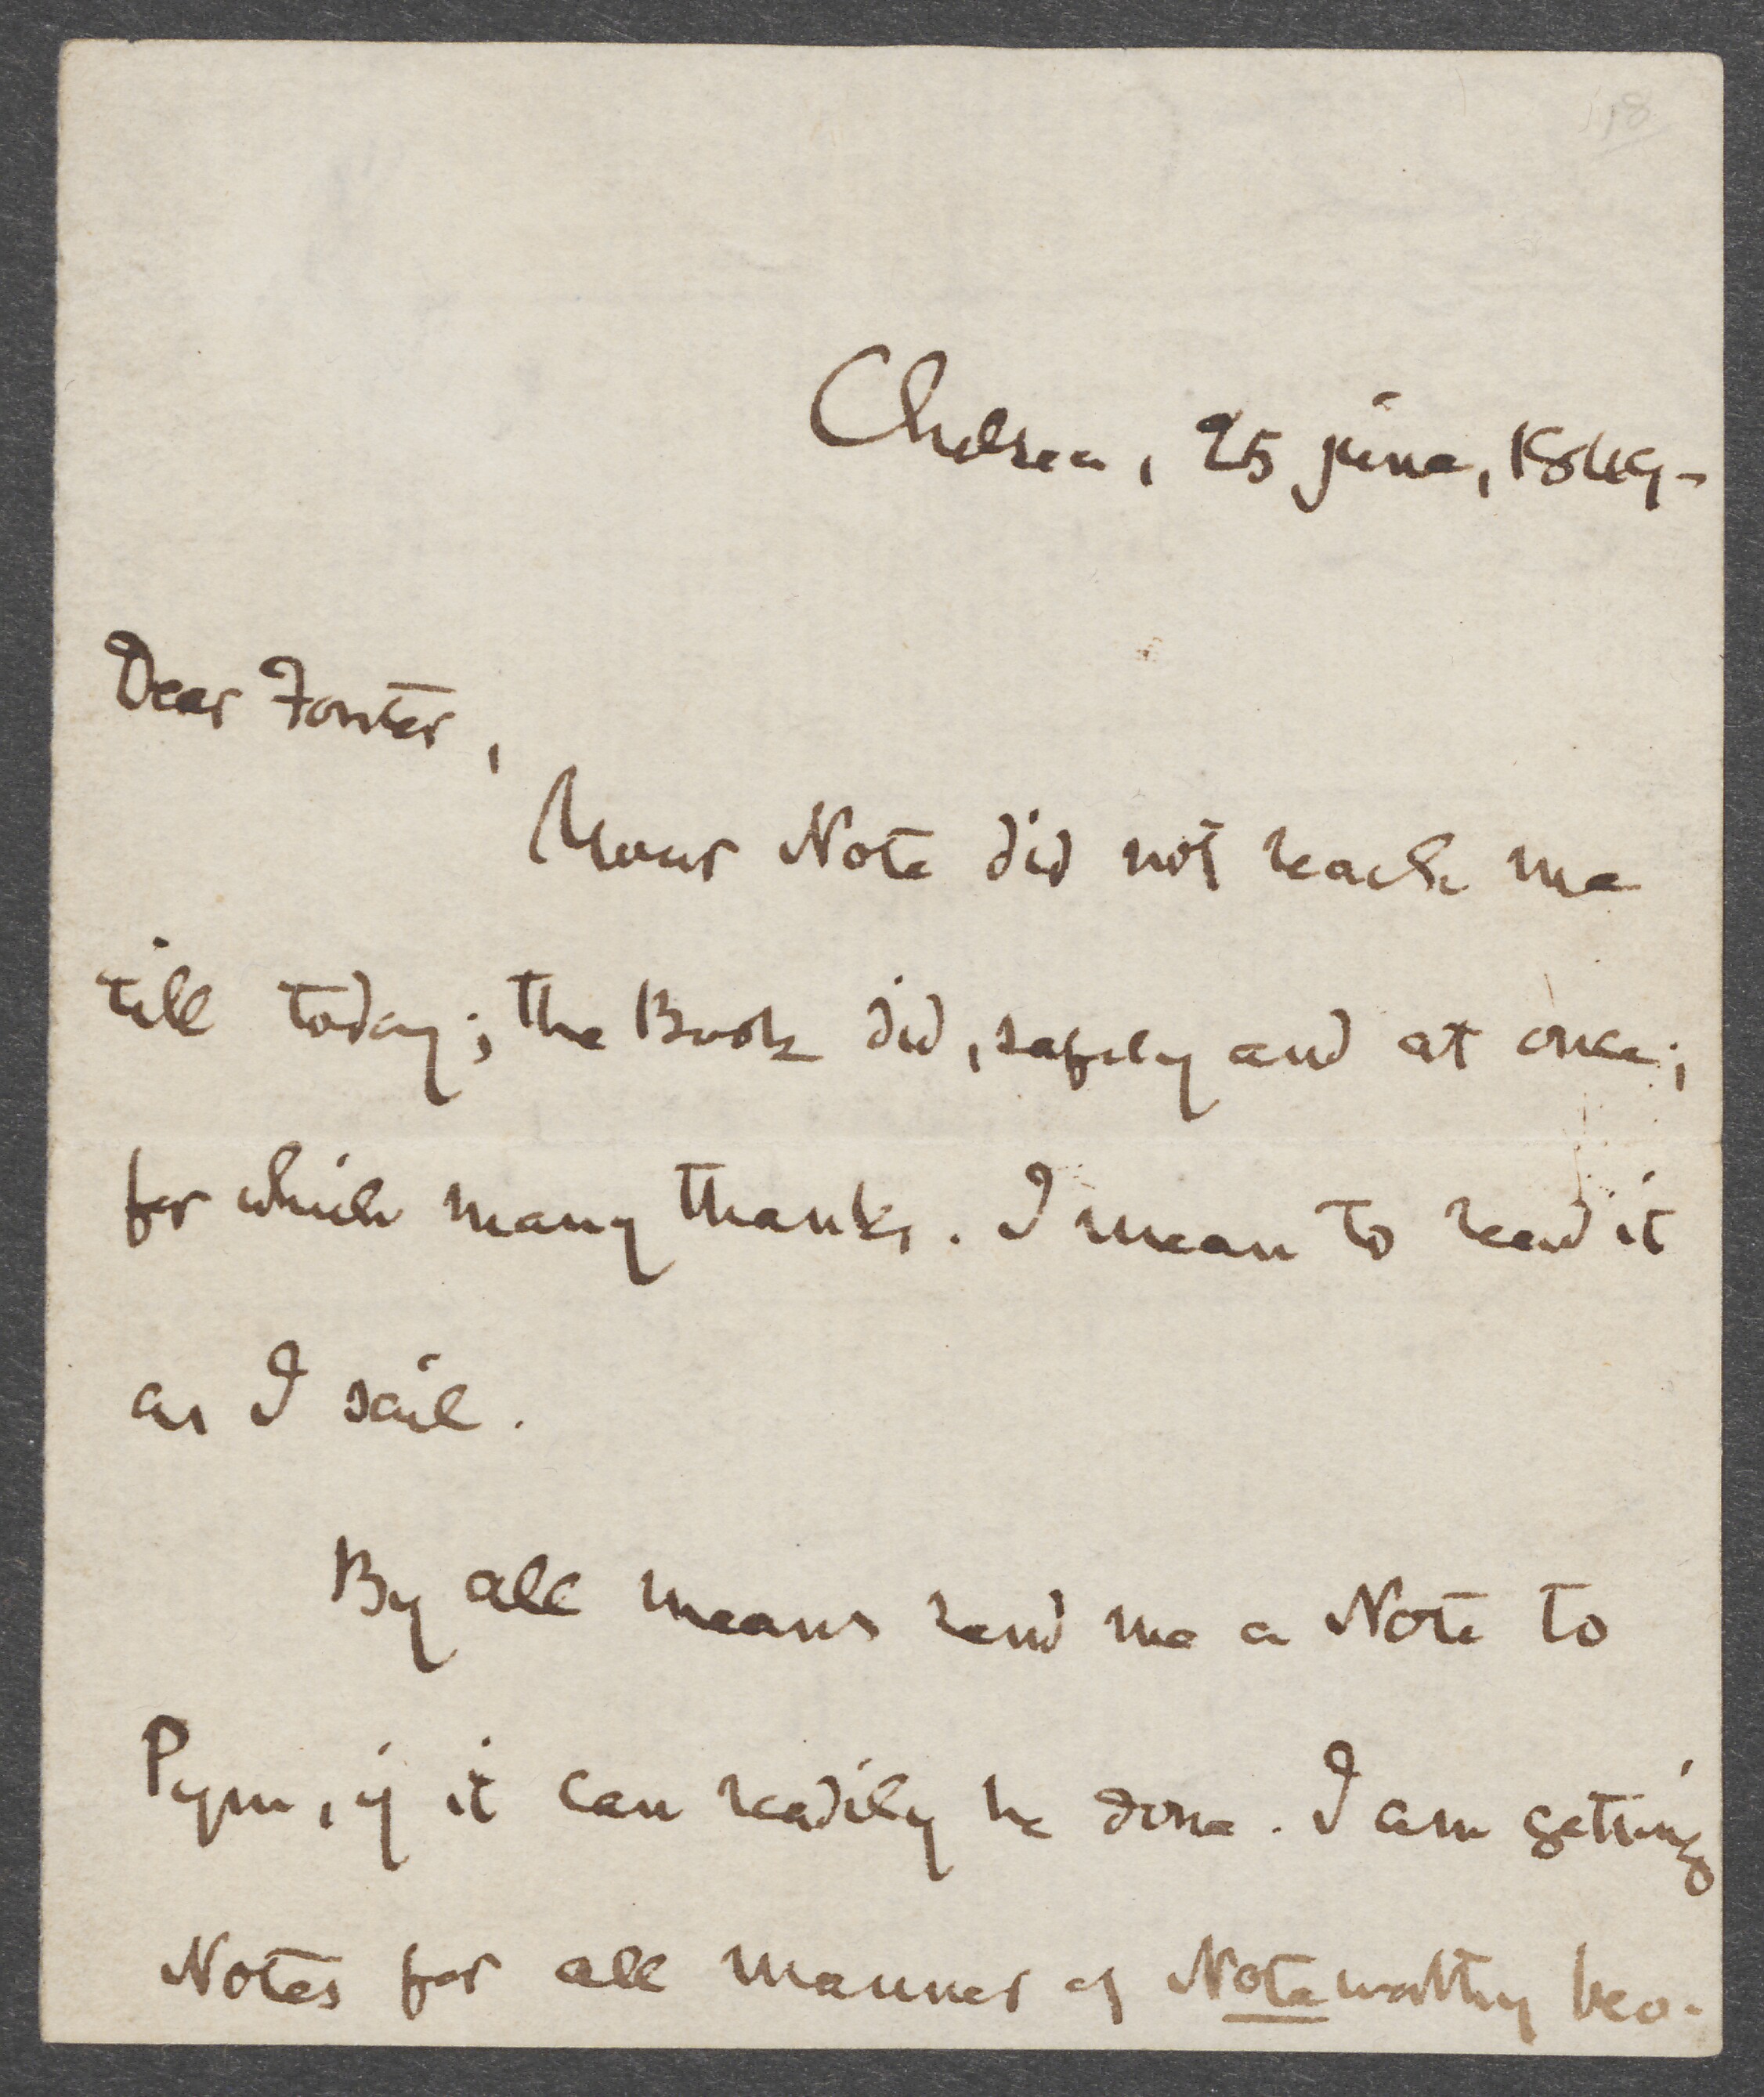 118
Chelsea, 25 june, 1849 -
Dear Forster,
Your Note did not reach me
till today; the Book did, safely and at once;
for which many thanks. I mean to read it
as I sail.
By all means send me a Note to
Pym, if it can readily be done. I am getting
Notes for all manner of Noteworthy peo-